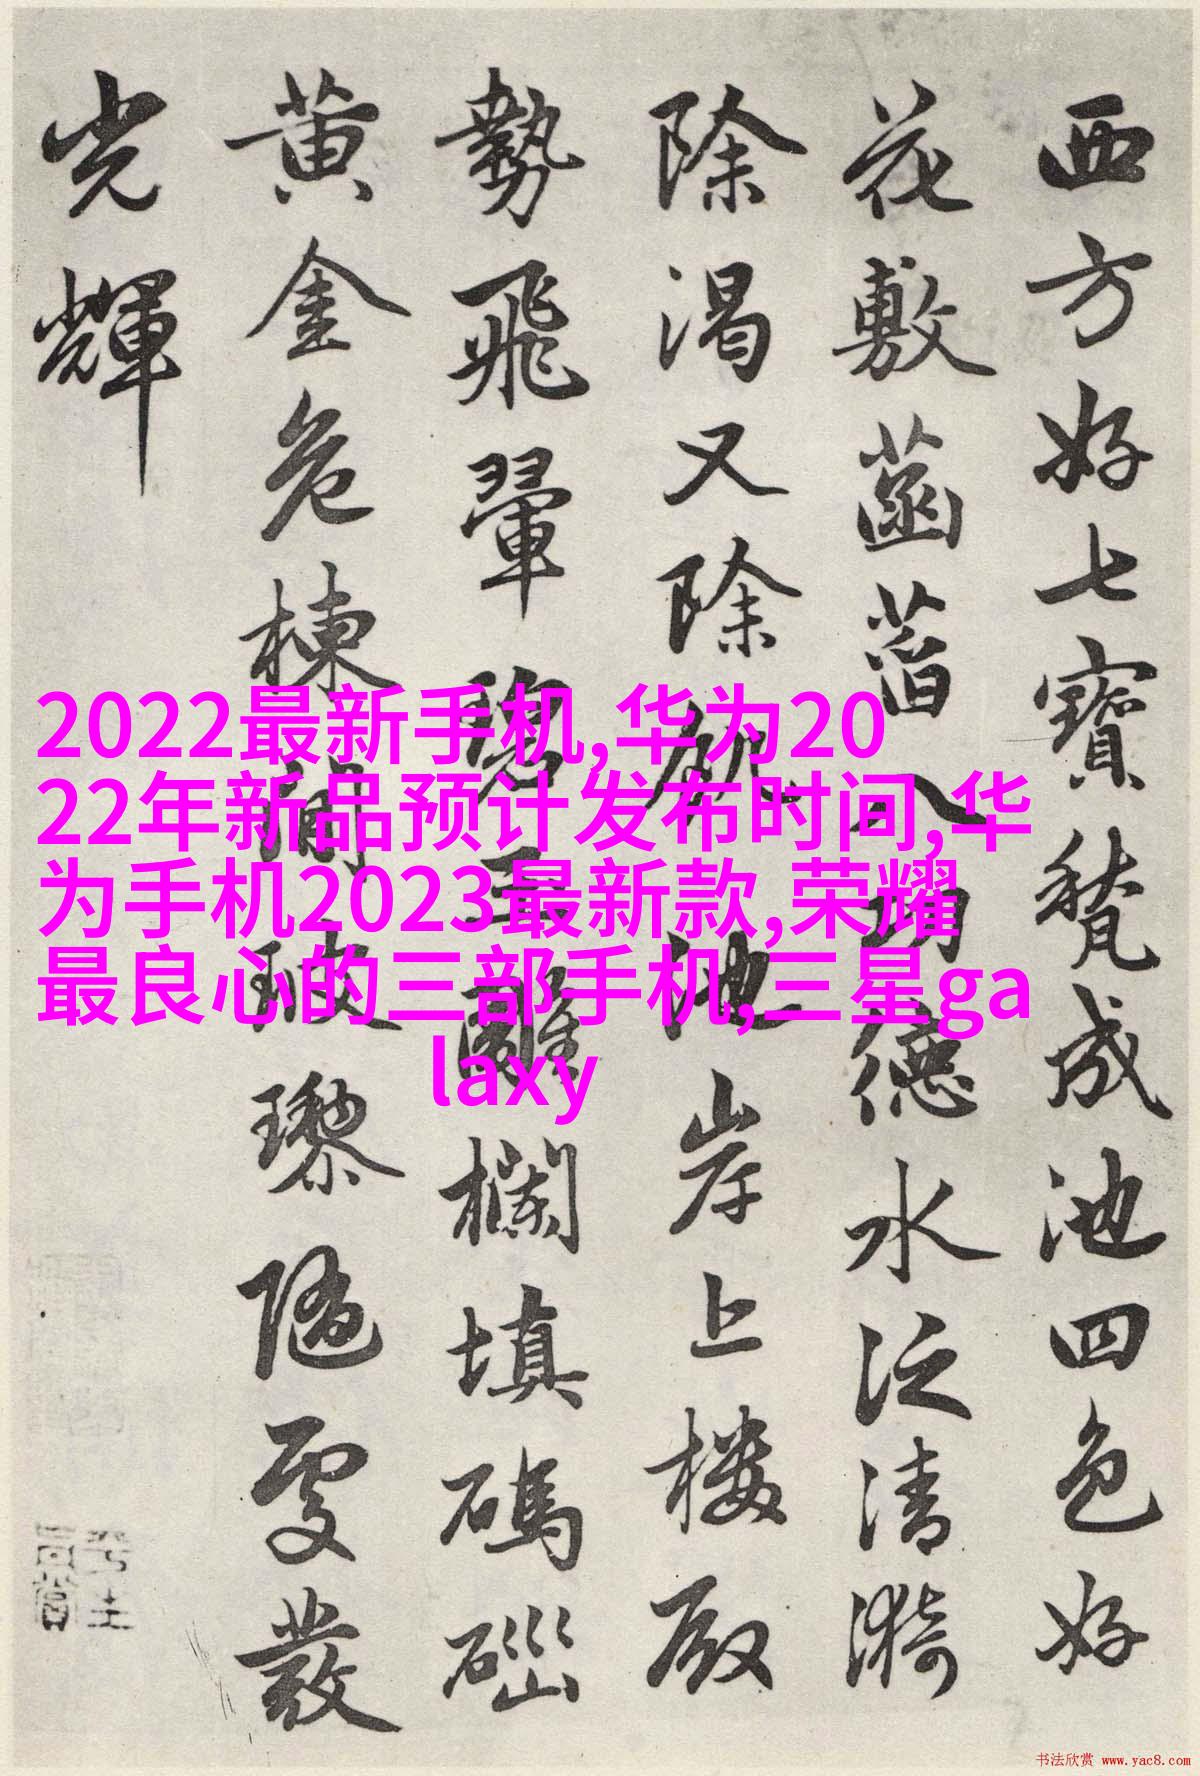 西方好七寶甃成池四色好
花敷菡萏八功德水泛清漪
除渴又除飢池岸上樓殿
勢飛翬碧玉雕欄填碼碯
黄金危棟間玻瓈隨處發
光輝
2022最新手机,华为20
22年新品预计发布时间,华
为手机2023最新款,荣耀
最良心的三部手机,三星ga
laxy
书法欣赏 www.yac8.com